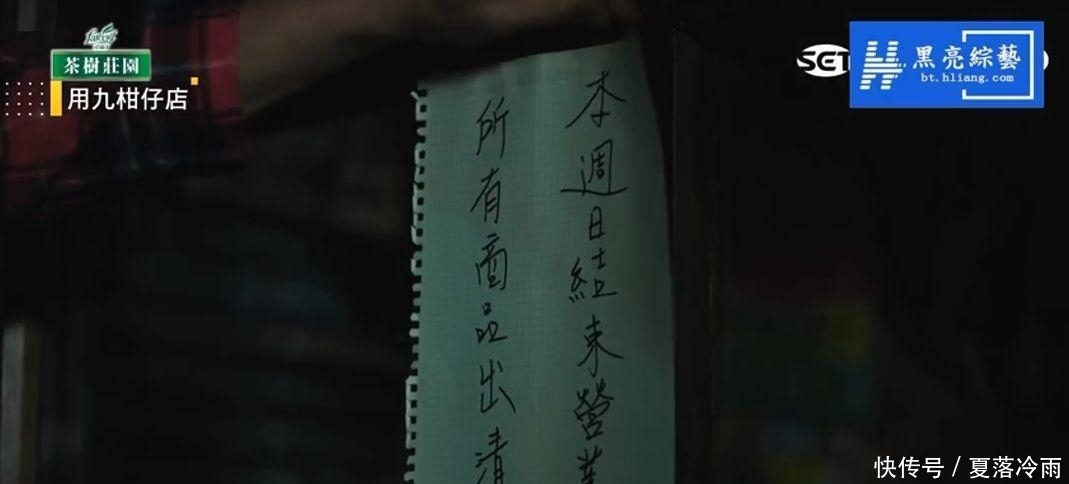 茶樹莊園
用九柑仔店
黑亮綜藝
bt.hliang.com
本週日結束營業
所有商品出清
快传号 / 夏落冷雨